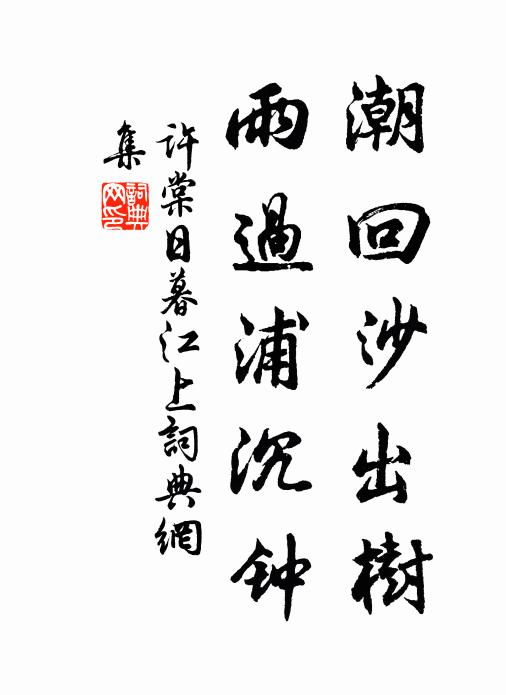 潮回沙出樹
雨過浦沉钟
許棠日暮江上詞典網
集
詞典网印